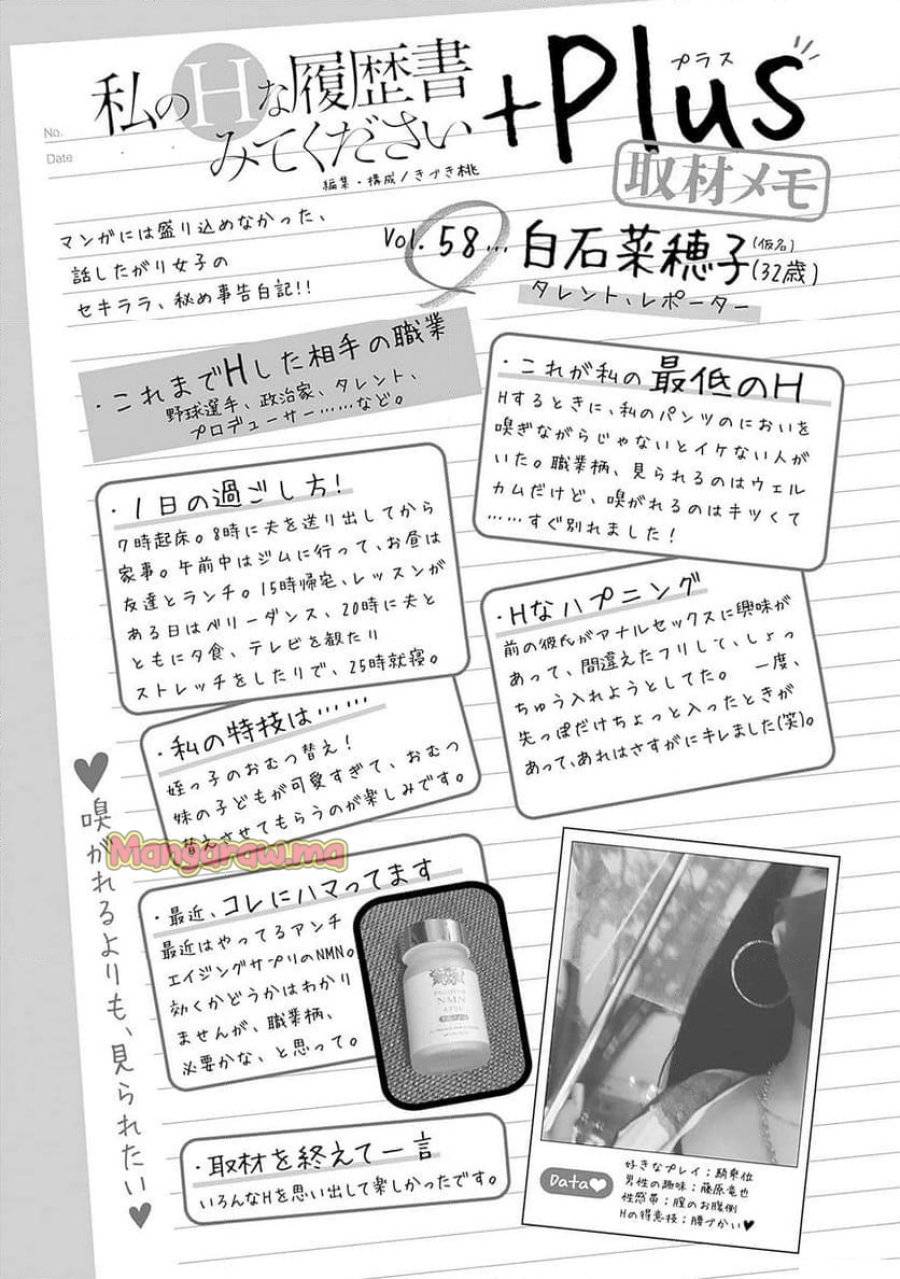 No.
Date
私のHな履歴書
みてください
+Plus
プラス
取材メモ
編集・構成/きづき桃
マンガには盛り込めなかった、
話したがり女子の
セキララ、秘め事告白記!!
Vol.58…白石菜穂子(仮名)(32歳)
タレント、レポーター
・これまでHした相手の職業
野球選手、政治家、タレント、
プロデューサー……など。
・これが私の最低のH
Hするときに、私のパンツのにおいを
嗅ぎながらじゃないとイケない人が
いた。職業柄、見られるのはウェル
カムだけど、嗅がれるのはキツくて
……すぐ別れました!
・1日の過ごし方!
7時起床。8時に夫を送り出してから
家事。午前中はジムに行って、お昼は
友達とランチ。15時帰宅、レッスンが
ある日はベリーダンス、20時に夫と
ともに夕食、テレビを観たり
ストレッチをしたりで、25時就寝。
・Hなハプニング
前の彼氏がアナルセックスに興味が
あって、間違えたフリして、しょっ
ちゅう入れようとしてた。一度、
先っぽだけちょっと入ったときが
あって、あれはさすがにキレました(笑)。
・私の特技は……
姪っ子のおむつ替え!
妹の子どもが可愛すぎて、おむつ
替えさせてもらうのが楽しみです。
Mangaraw.ma
・最近、コレにハマってます
最近はやってるアンチ
エイジングサプリのNMN。
効くかどうかはわかり
ませんが、職業柄、
必要かな、と思って。
NMN
♥嗅がれるよりも、見られたい♥
・取材を終えて一言
いろんなHを思い出して楽しかったです。
Data♥
好きなプレイ:騎乗位
男性の趣味:藤原竜也
性感帯:膣のお腹側
Hの得意技:腰づかい♥